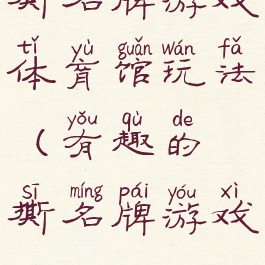 撕名牌游戏
tǐ yù guǎn wán fǎ
体育馆玩法
yǒu qù de
(有趣的
sī míng pái yóu xì
撕名牌游戏